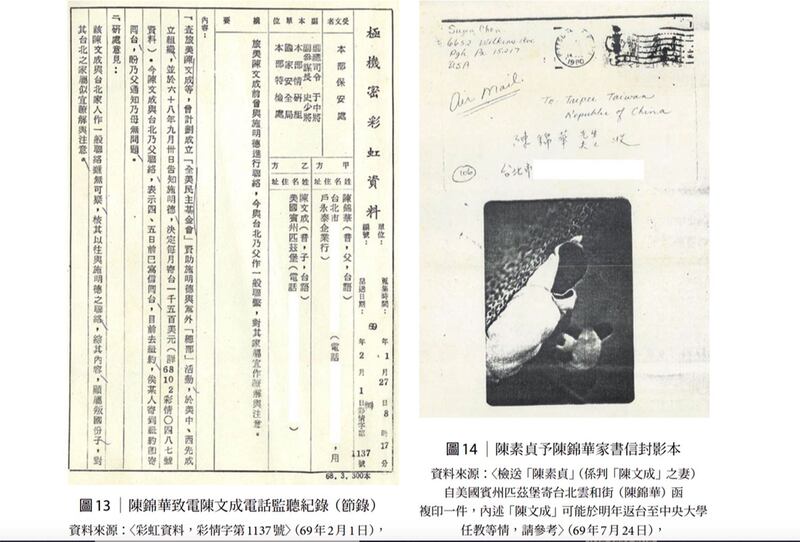 極機密彩虹資料
單位：
編號：
蒐集時間：69年1月27日8時17分
呈送日期：69年2月1日彩情字第1137號
受文者名單
本部保安處
副總司令 于中將
副參謀長 史少將
本部情研組
國家安全局
本部特檢處
甲方
姓名住址
陳錦華（昔，父，台語）
台北市
（電話
，用
戶永泰企業行）
乙方
姓名住址
陳文成（昔，子，台語）
美國賓州匹茲堡（電話
摘要
旅美陳文成前曾與施明德進行聯絡，今與台北乃父作一般聯繫，對其家屬宜作瞭解與注意。
內容：
一、查旅美陳文成等，曾計劃成立「全美民主基金會」資助施明德與黨外「總部」活動，於美中、西先成
立組織，並於六十八年九月卅日告知施明德，決定每月寄台一千五百美元（詳68102彩情〇四八七號
資料）。今陳文成與台北乃父聯絡，表示四、五日前已寫信問台，目前去紐約，俟某人寄到紐約即寄
問台，盼乃父通知乃母無問題。
二、研處意見：
該陳文成與台北家人作一般聯絡雖無可疑，核其以往與施明德之聯絡，綜其內容，顯屬叛國份子，對
其台北之家屬似宜瞭解與注意。
68.3.300本
圖13｜陳錦華致電陳文成電話監聽紀錄（節錄）
資料來源：〈彩虹資料，彩情字第1137號〉（69年2月1日），
Chen
6652
Pgh. Pa 15217
USA
1980
Air Mail.
To: Taipei Taiwan
Republic of China
陳錦華先生收
106
台北市
圖14｜陳素貞予陳錦華家書信封影本
資料來源：〈檢送「陳素貞」（係判「陳文成」之妻）
自美國賓州匹茲堡寄台北雲和街（陳錦華）函
複印一件，內述「陳文成」可能於明年返台至中央大學
任教等情，請參考〉（69年7月24日），